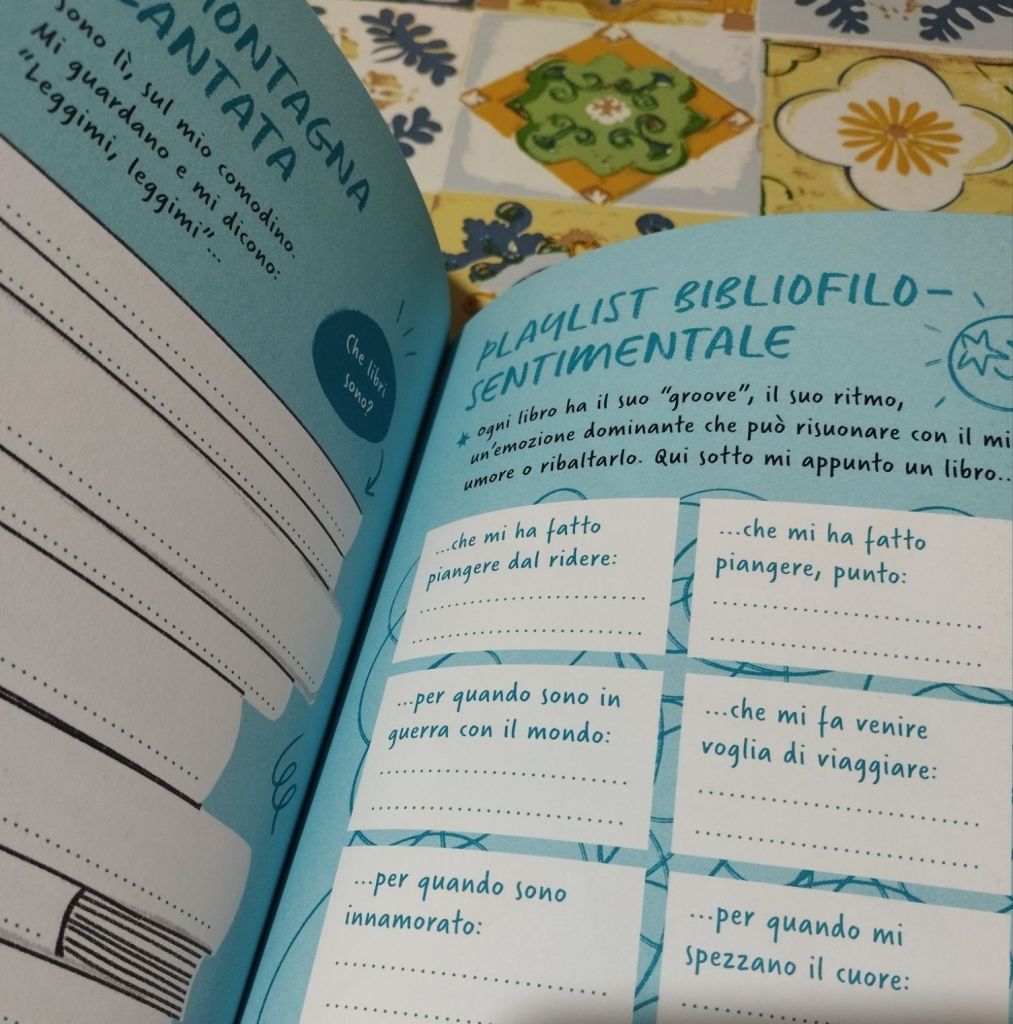 MONTAGNA
CANTATA
sono lì, sul mio comodino.
Mi guardano e mi dicono:
"Leggimi, leggimi"...
Che libri
sono?
PLAYLIST BIBLIOFILO-
SENTIMENTALE
* ogni libro ha il suo "groove", il suo ritmo,
un'emozione dominante che può risuonare con il mi
umore o ribaltarlo. Qui sotto mi appunto un libro...
...che mi ha fatto
piangere dal ridere:
...che mi ha fatto
piangere, punto:
...per quando sono in
guerra con il mondo:
...che mi fa venire
voglia di viaggiare:
...per quando sono
innamorato:
...per quando mi
spezzano il cuore: